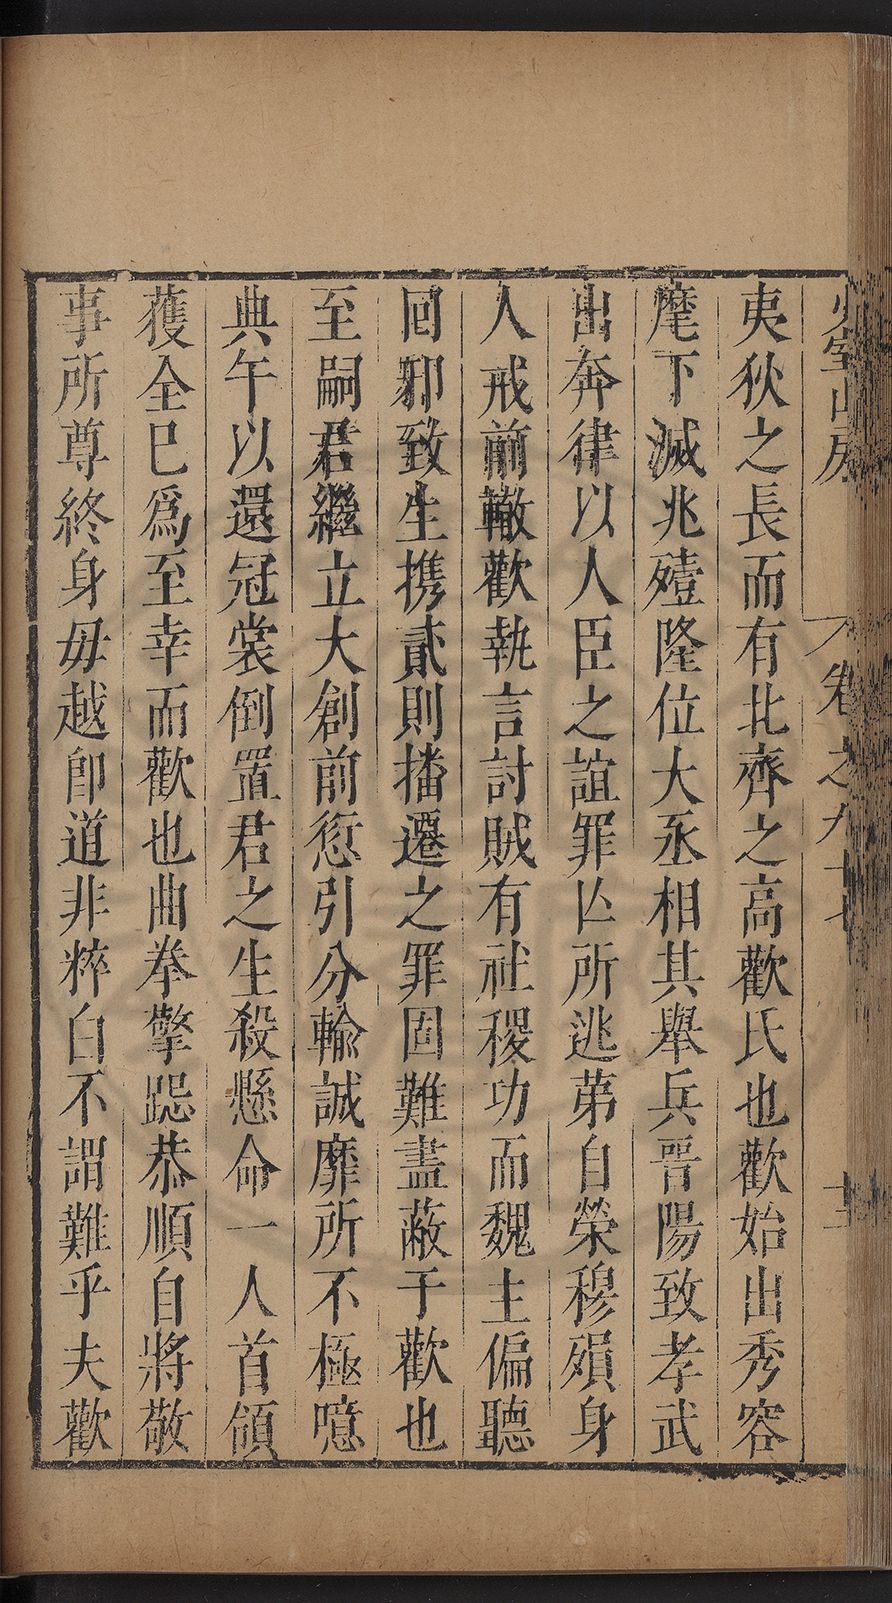 少室山房
卷之九十七
十二
夷狄之長而有北齊之高歡氏也歡始出秀容
麾下滅兆殪隆位大丞相其舉兵晋陽致孝武
出奔律以人臣之誼罪亾所逃苐自榮穆殞身
人戒前轍歡執言討賊有社稷功而魏主偏聽
回邪致生携貳則播遷之罪固難盡蔽于歡也
至嗣君繼立大創前愆引分輸誠靡所不極噫
典午以還冠裳倒置君之生殺懸命一人首領
獲全巳爲至幸而歡也曲拳擎跽恭順自將敬
事所尊終身毋越卽道非粹白不謂難乎夫歡